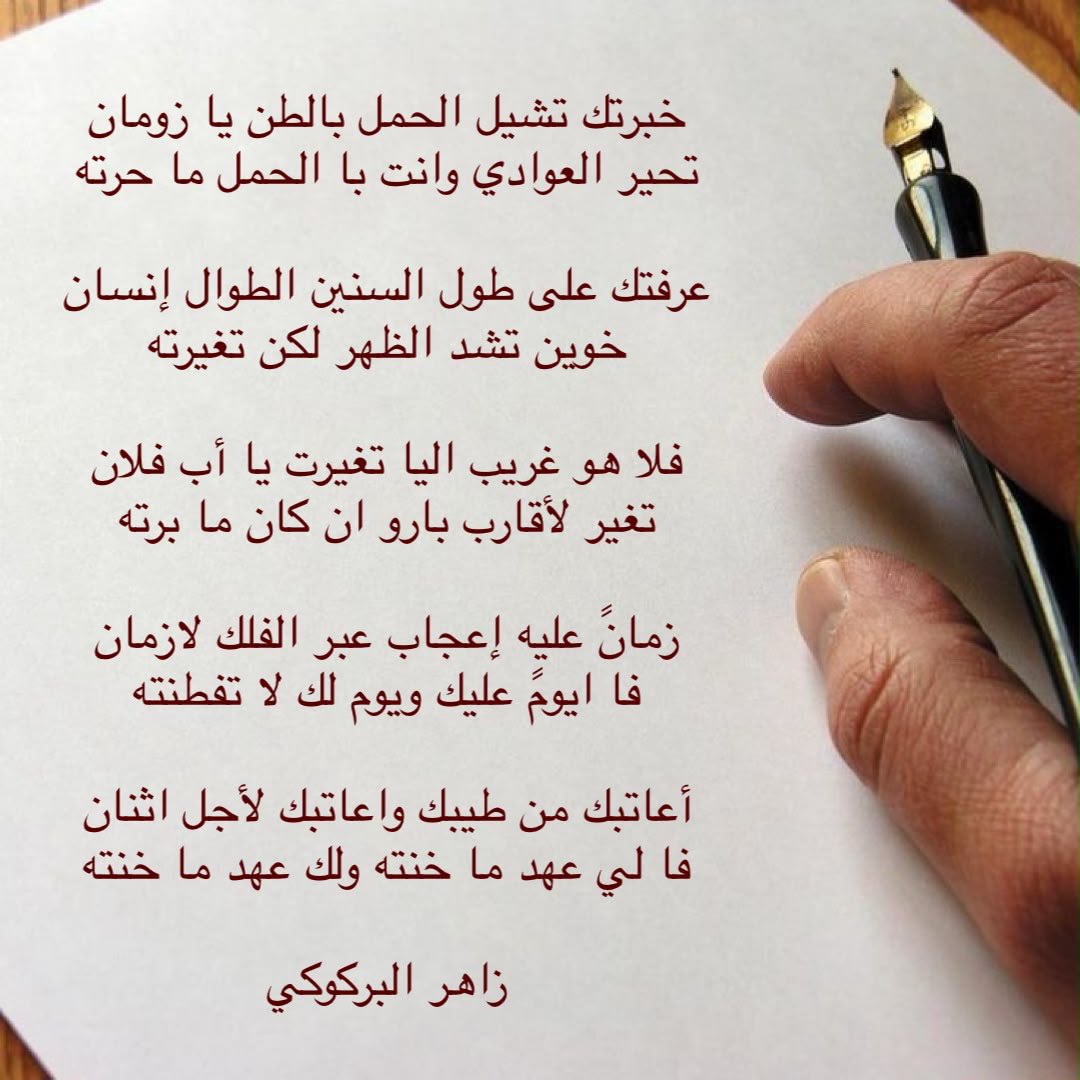 خبرتك تشيل الحمل بالطن يا زومان
تحير العوادي وانت با الحمل ما حرته
عرفتك على طول السنين الطوال إنسان
خوين تشد الظهر لكن تغيرته
فلا هو غريب اليا تغيرت يا أب فلان
تغير لأقارب بارو ان كان ما برته
زمانً عليه إعجاب عبر الفلك لازمان
فا ايومً عليك ويوم لك لا تفطنته
أعاتبك من طيبك واعاتبك لأجل اثنان
فا لي عهد ما خنته ولك عهد ما خنته
زاهر البركوكي